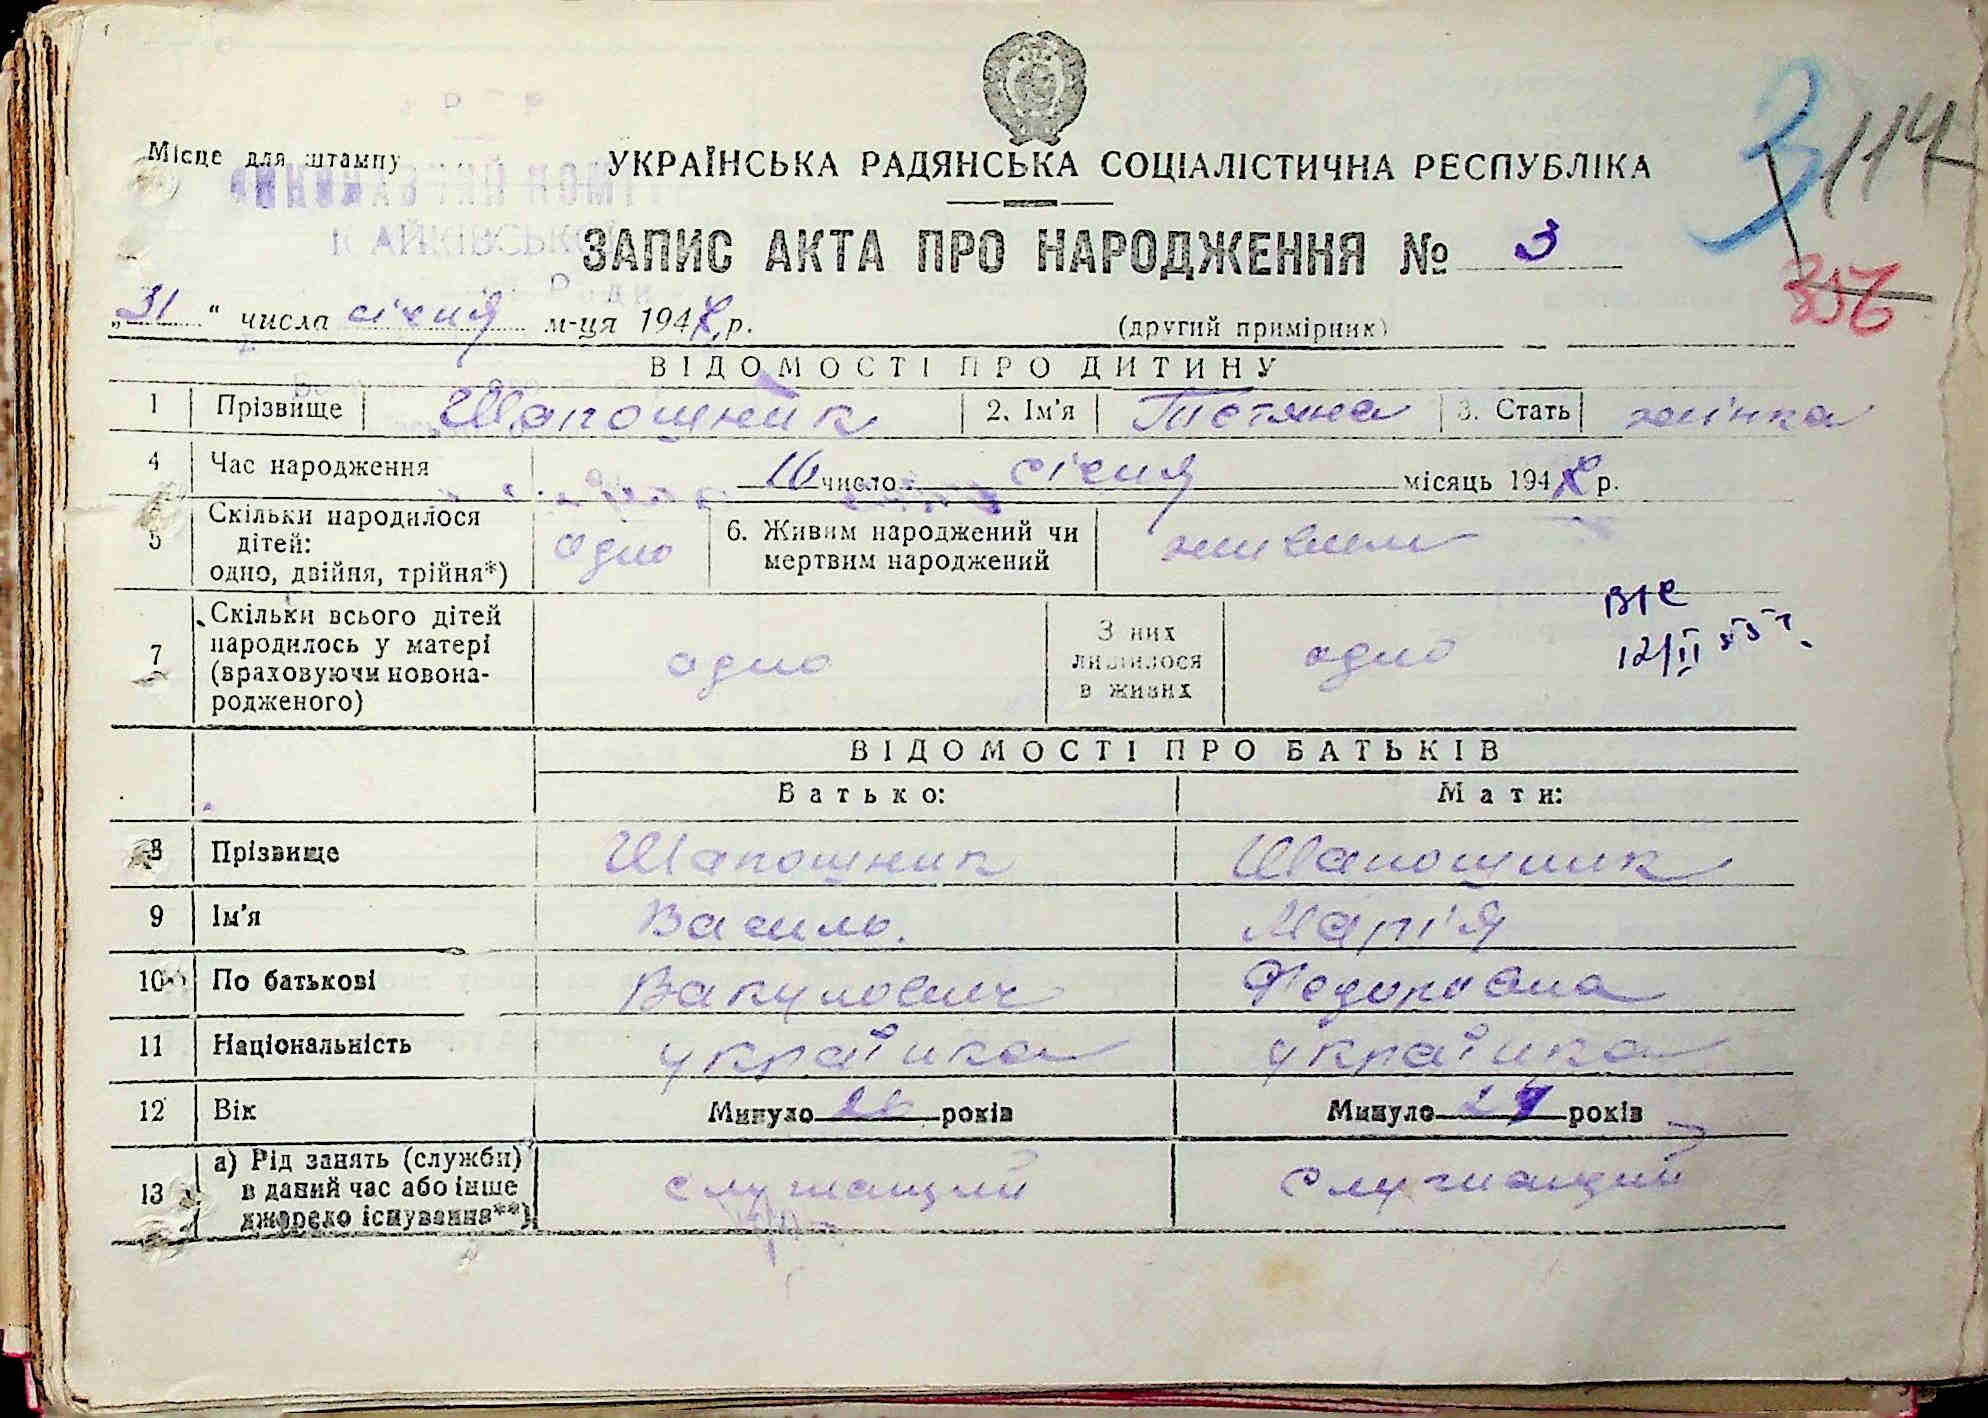 Місце для штампу
3 114
УКРАЇНСЬКА РАДЯНСЬКА СОЦІАЛІСТИЧНА РЕСПУБЛІКА
ЗАПИС АКТА ПРО НАРОДЖЕННЯ № 3
356
„31“ числа січня м-ця 1948 р.
(другий примірник)
ВІДОМОСТІ ПРО ДИТИНУ
1 Прізвище Шапошник 2. Ім'я Тетяна 3. Стать жінка
4 Час народження 16 число січня місяць 1948 р.
5 Скільки народилося дітей: одно, двійня, трійня*) одно 6. Живим народжений чи мертвим народжений живим
7 Скільки всього дітей народилось у матері (враховуючи новонародженого) одно З них лишилося в живих одно
12/II 55 г.
ВІДОМОСТІ ПРО БАТЬКІВ
Батько: Мати:
8 Прізвище Шапошник Шапошник
9 Ім'я Василь. Марія
10 По батькові Вакулович Федоровна
11 Національність українка українка
12 Вік Минуло років Минуло 24 років
13 а) Рід занять (служби) в даний час або інше джерело існування**) служащий служащий